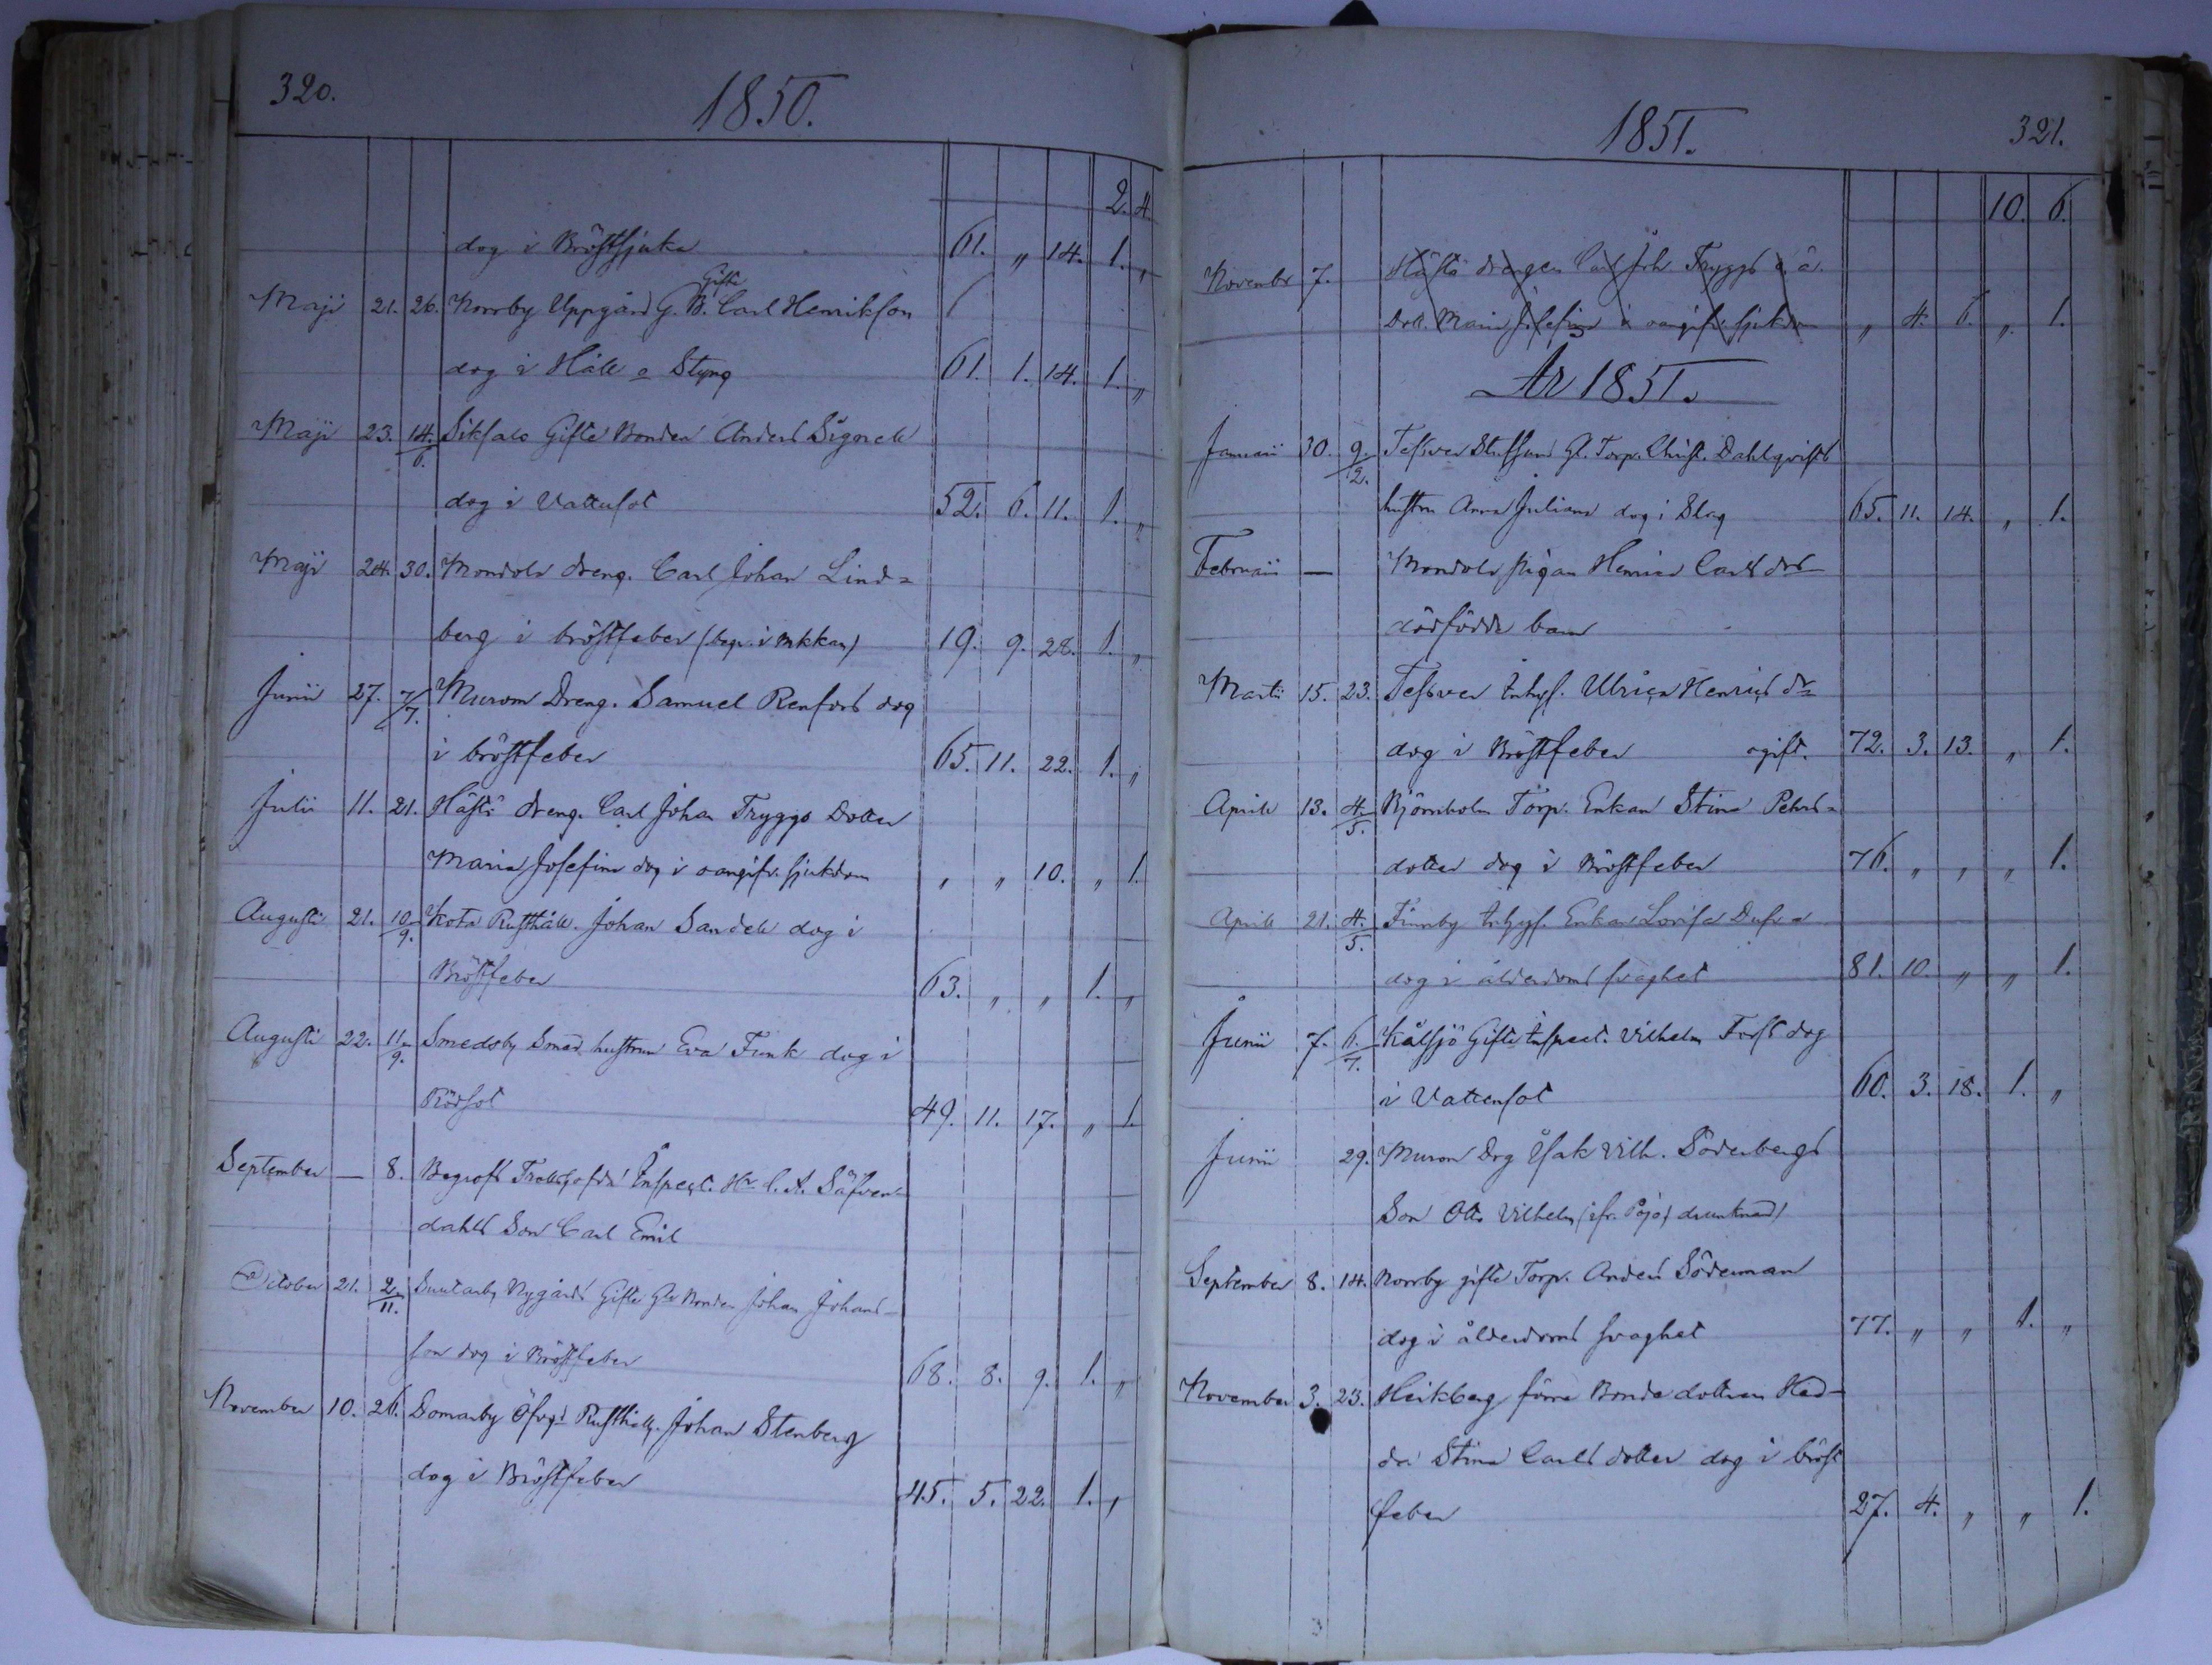 320.
1850.
2. 4.
dog i Bröstsjuka 61. " 14. 1. "
Gifte
Maji 21. 26. Norrby Uppgård G. B. Carl Henrikson
dog i Håll o Styng 61. 1. 14. 1. "
Maji 23. 14./6. Siksalo Gifte Bonden Anders Sigorell
dog i Vattusot 52. 6. 11. 1. "
Maji 24. 30. Mondola dreng. Carl Johan Lind=
berg i bröstfeber 19. 9. 28. 1. "
Junii 27. 7/7. Murom Dreng. Samuel Renfors dog
i bröstfeber 65. 11. 22. 1. "
Julii 11. 21. Hästö dreng. Carl Johan Tryggs Dotter
Maria Josefina dog i oangifv. sjukdom " " 10. " 1.
Augusti 21. 10/9. Kota Rusthåll. Johan Sandell dog i
Bröstfeber 63. " " 1. "
Augusti 22. 11/9. Smedsby Smed. hustrun Eva Funk dog i
Rödsot 49. 11. 17. " 1.
September — 8. Begrofs Inspect. Hr C. A. Säfven=
dahls Son Carl Emil
October 21. 2/11. Suutarby Nygårds Gifte Gle Bonden Johan Johans-
son dog i Bröstfeber 68. 8. 9. 1. "
November 10. 26. Domarby Öfvergd Rusthåll. Johan Stenberg
dog i Bröstfeber 45. 5. 22. 1. "
1851. 321.
10. 6.
Novembr 7. Hästö drengen Carl Joh. Tryggs
Dott. Maria Josefina i oangifv. sjukdom " 4. 6. " 1.
År 1851.
Januarii 30. 9./2. Tessver Gl. Torp. Christ. Dahlqvists
hustru Anna Juliana dog i Slag 65. 11. 14. " 1.
Februarii — Mondola pigan Henrica Carls dr
dödfödda barn
Martii 15. 23. Tessver Inhys. Ulrica Henrics dr
dog i Bröstfeber ogift. 72. 3. 13. " 1.
Aprill 13. 4./5. Björnholm Torp. Enkan Stina Pehrs=
dotter dog i Bröstfeber 76. " " " 1.
Aprill 21. 4./5. Finnby Inhys. Enkan Lovisa Dufva
dog i ålderdoms svaghet 81. 10. " " 1.
Junii 7. 6./7. Kålsjö Gifte Inspect. Vilhelm Forss dog
i Vattensot 60. 3. 18. 1. "
Junii 29. Muron Drg Isak Vilh. Söderbergs
Son Otto Vilhelm (ifr. Pojo) drunknad)
September 8. 14. Norrby gifte Torp. Anders Söderman
dog i ålderdoms svaghet 77. " " 1. "
November 3. 23. Heikberg förra Bonde dottren Hed-
da Stina Carls dotter dog i bröst
feber 27. 4. " " 1.